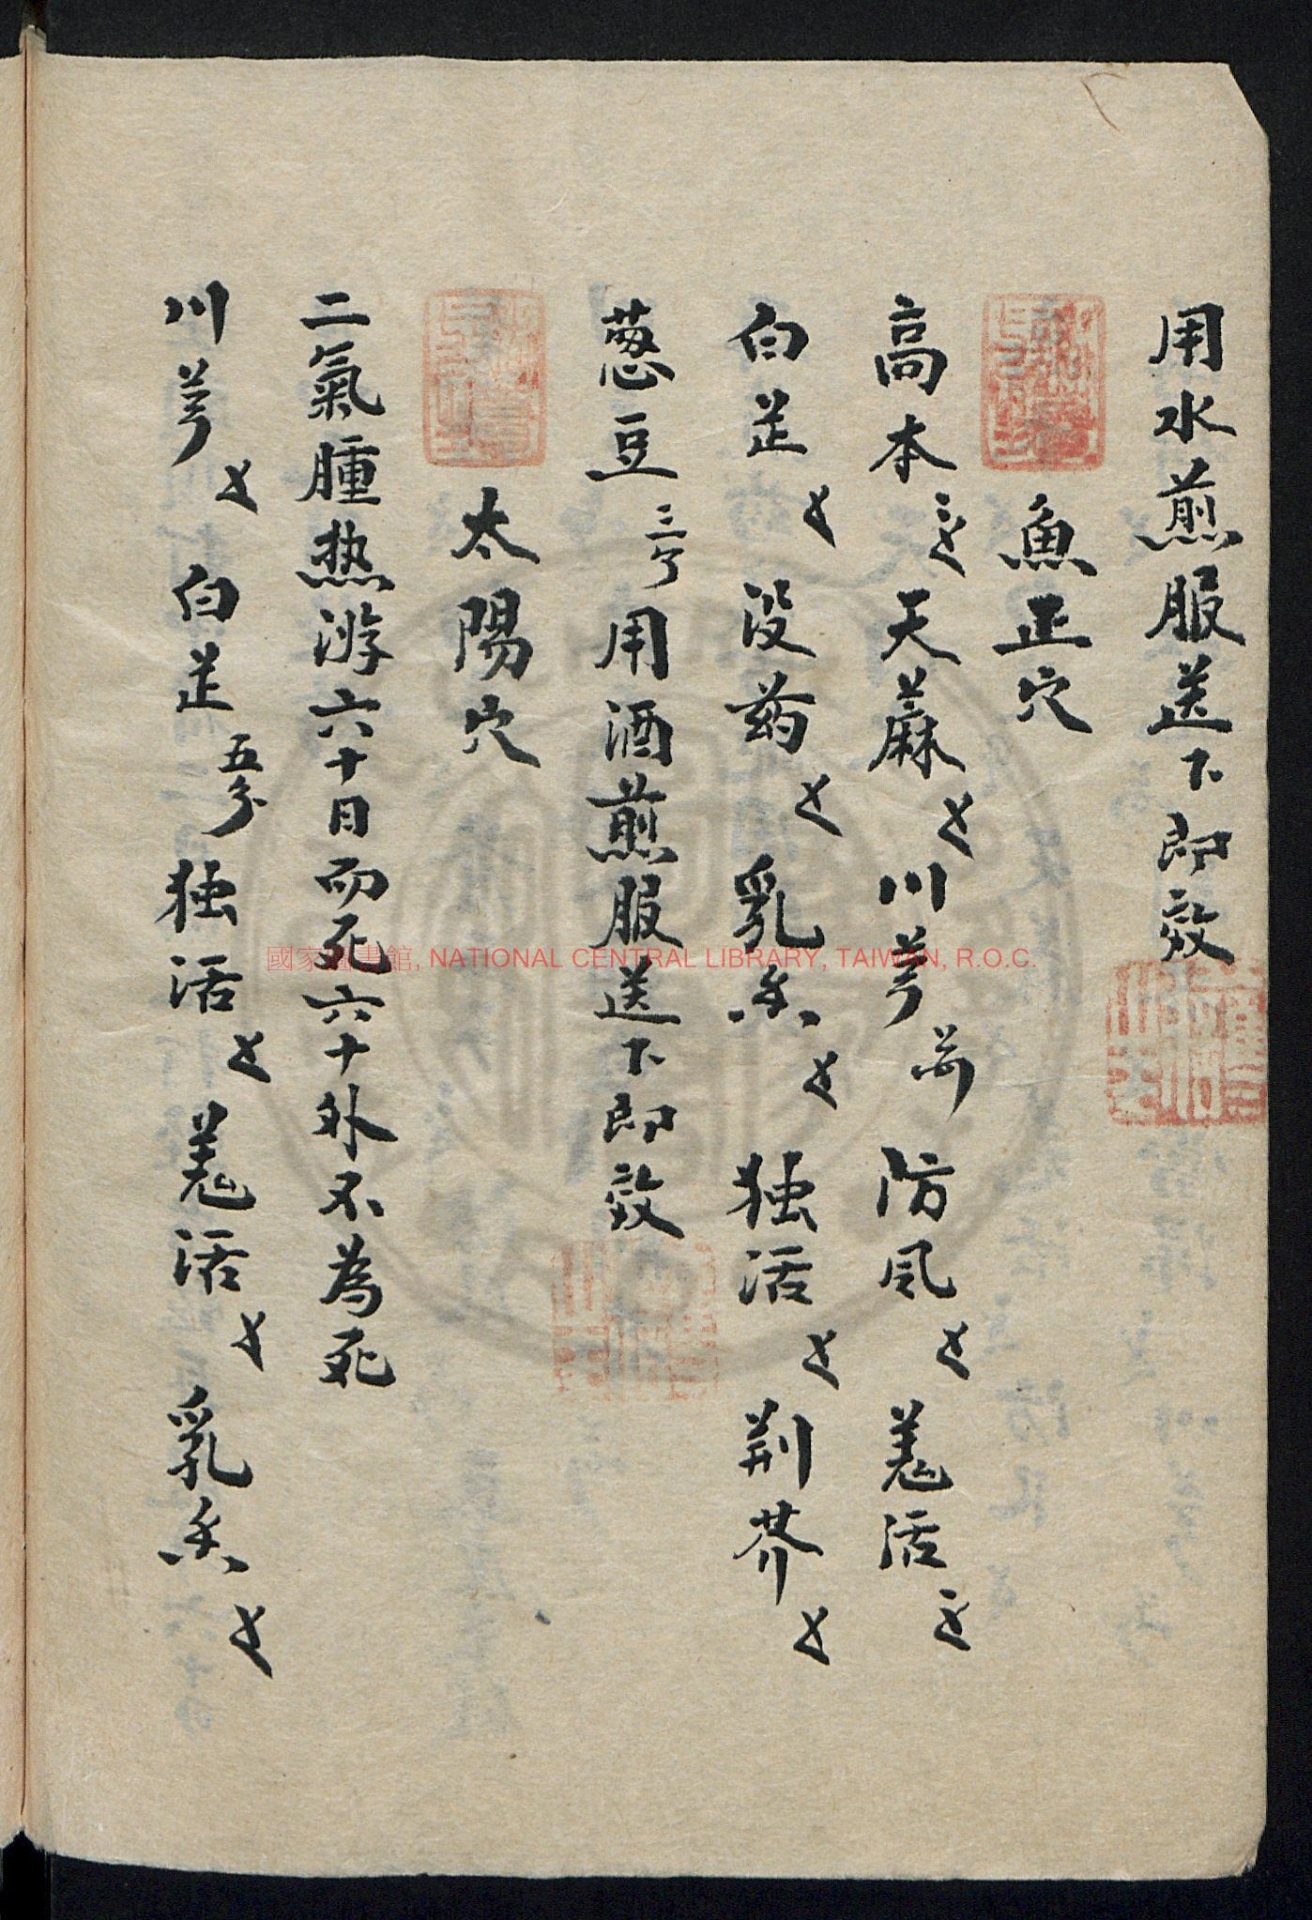 用水煎服送下即效
魚正穴
高本 天蔴 川芎 防风 羗活
白芷 没药 乳香 独活 荆芥
葱豆 用酒煎服送下即效
太陽穴
二氣腫热游六十日而死六十外不為死
川芎 白芷五分 独活 羗活 乳香
國家圖書館, NATIONAL CENTRAL LIBRARY, TAIWAN, R.O.C.